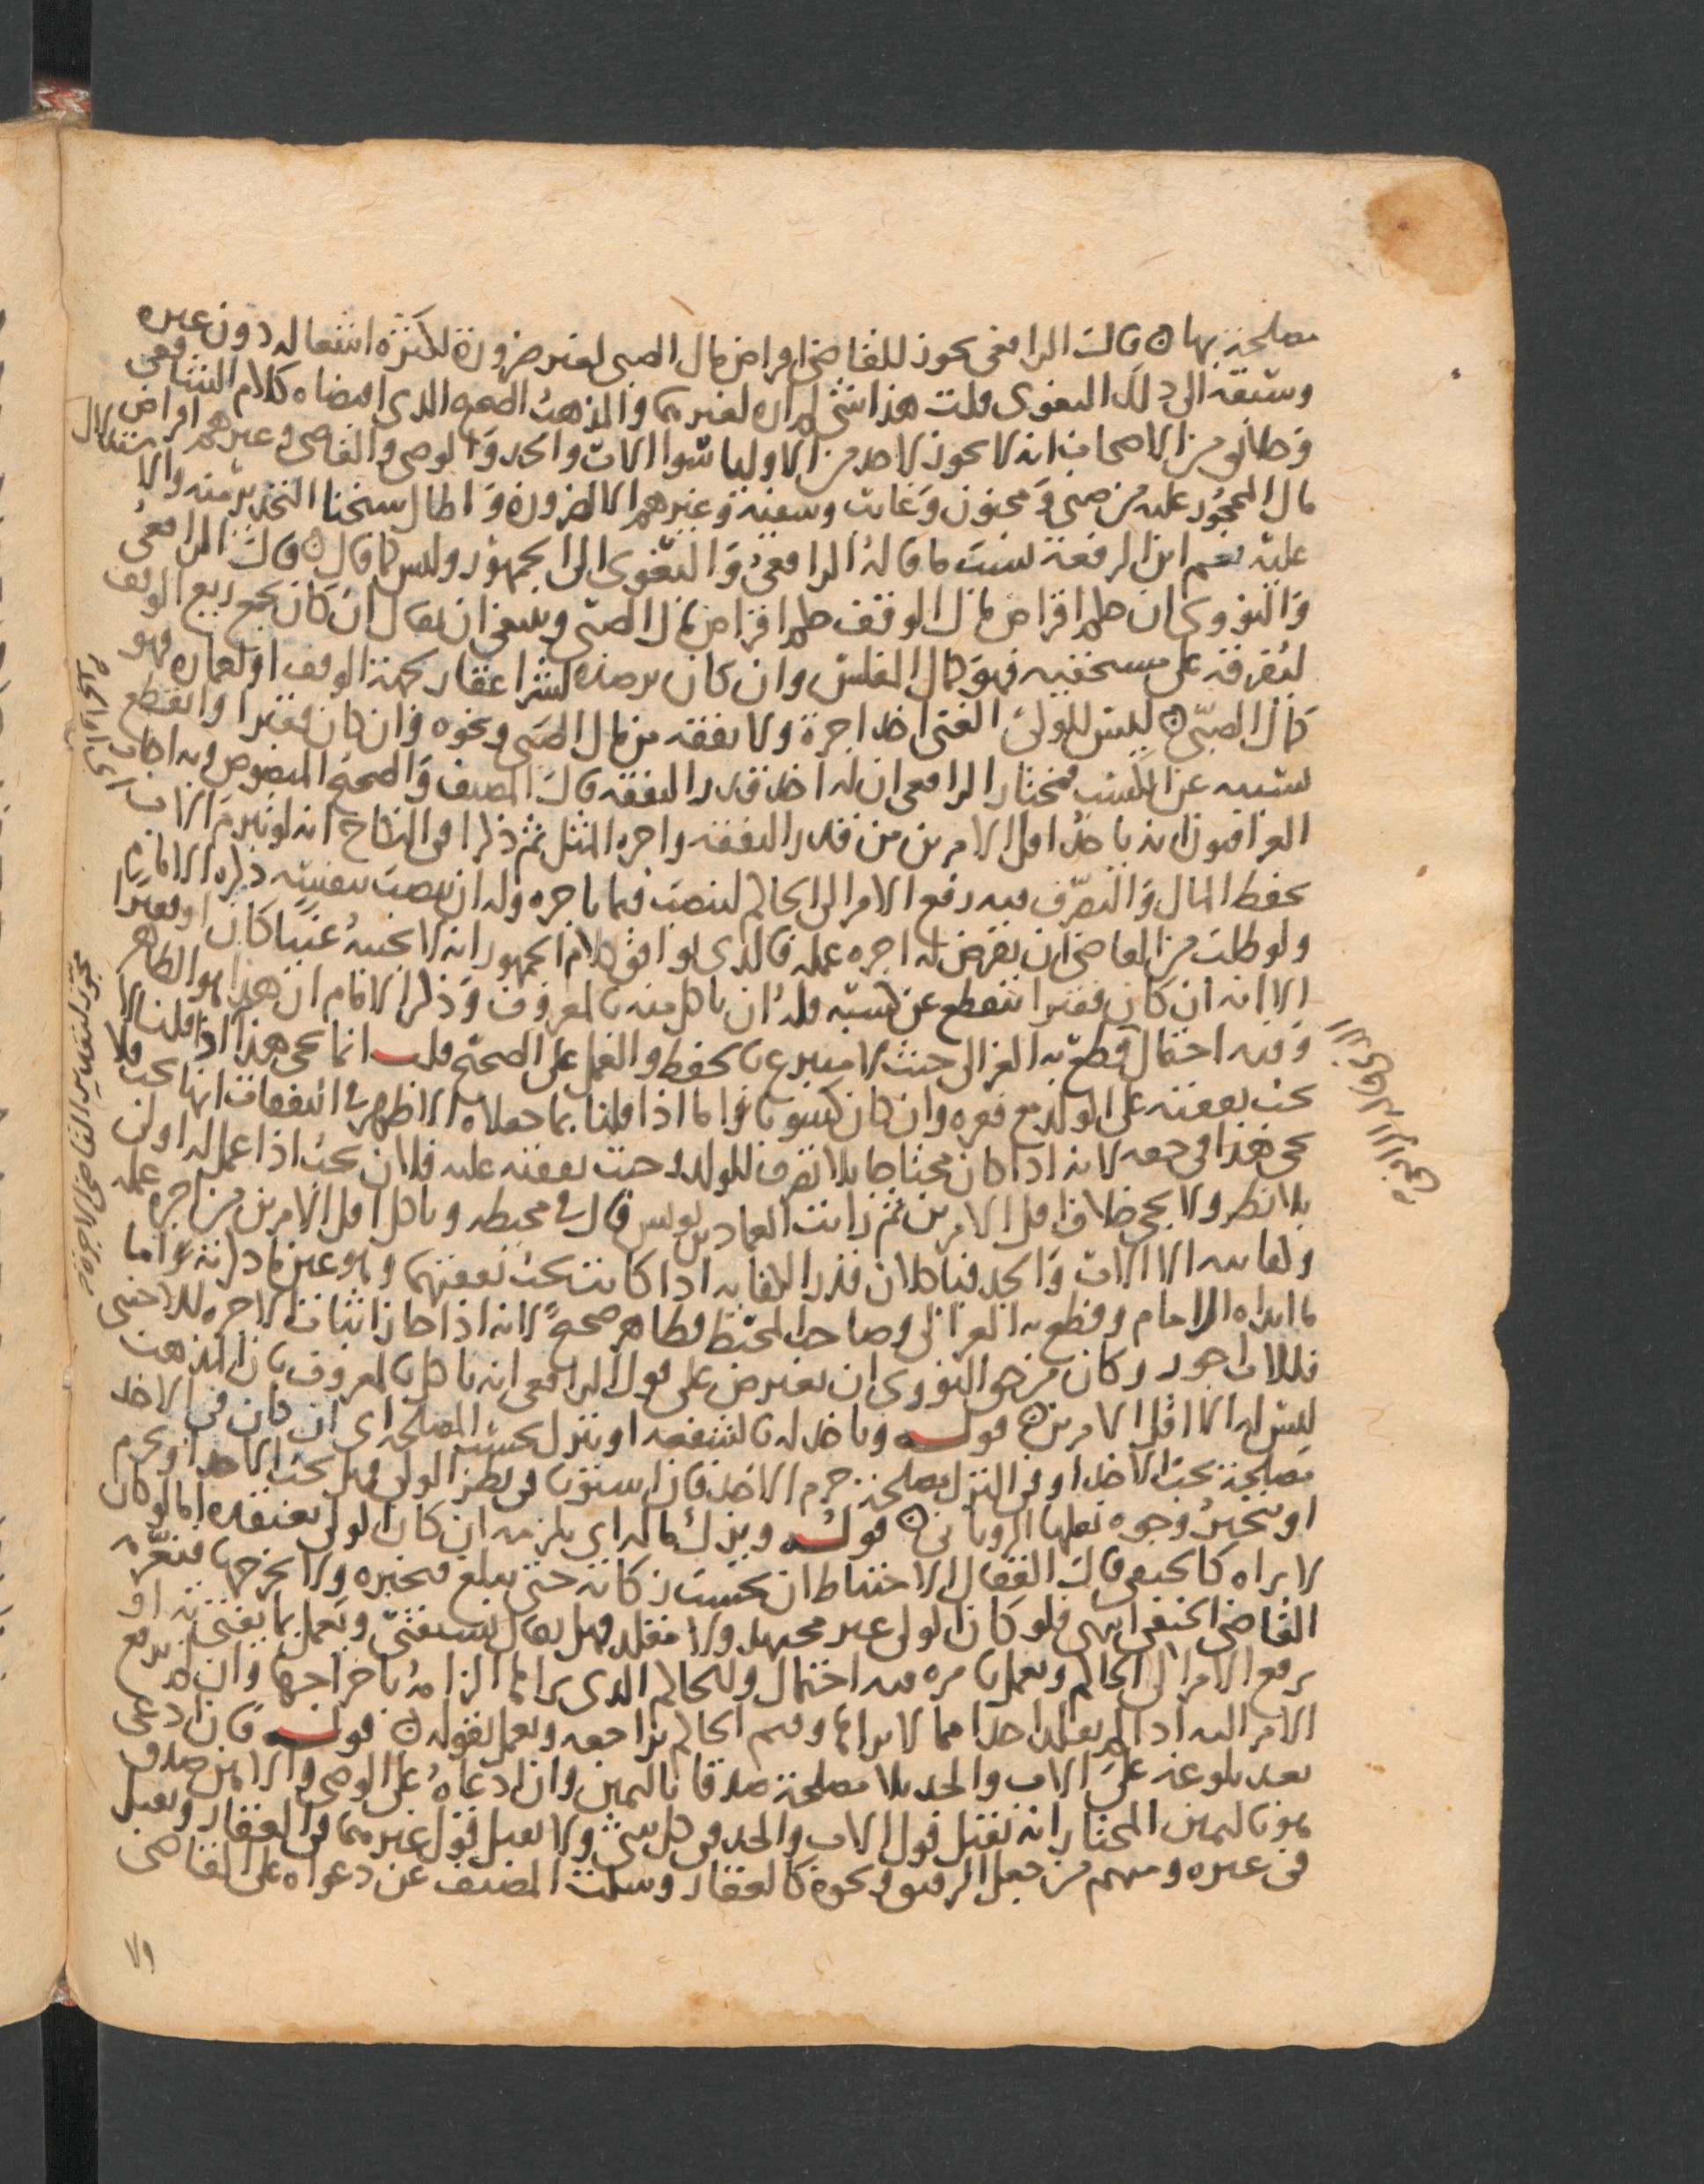 مصلحة بها ۞ قال الرافعي يجوز للقاضي اقراض مال الصبي لغير ضرورة لكثرة اشتغاله دون غيره
وسبقه الى ذلك البغوي قلت هذا شي لم اره لغيرهما والمذهب الصحيح الذي اقتضاه كلام الشافعي
وخلائق من الاصحاب انه لا يجوز لاحد من الاوليا سوا الاب والجد والوصي والقاضي وغيرهم اقراض
مال المحجور عليه من صبي ومجنون وغائب وسفيه وغيرهم الا لضرورة واطال شيخنا التحذير منه والا
عليه نعم ابن الرفعة نسب ما قاله الرافعي والبغوي الى الجمهور وليس كما قال ۞ قال الرافعي
والنووي ان حكم اقراض مال الوقف حكم اقراض مال الصبي وينبغي ان يقال ان كان يجمع ريع الوقف
ليفرقه على مستحقيه فهو كمال المفلس وان كان يرصده لشرا عقار لجهة الوقف او لعمارة فهو
كمال الصبي ۞ ليس للولي الغني اخذ اجرة ولا نفقة من مال الصبي ونحوه وان كان فقيرا وانقطع
بسببه عن الكسب فمختار الرافعي ان له اخذ قدر النفقة قال المصنف والصحيح المنصوص وبه اجاب
العراقيون انه ياخذ اقل الامرين من قدر النفقة واجرة المثل ثم ذكرا في النكاح انه لو تبرم الاب
بحفظ المال والتصرف فيه رفع الامر الى الحاكم لينصب قيما باجرة وله ان ينصب بنفسه ذكره الامام
ولو طلب من القاضي ان يفرض له اجرة عمله فالذي يوافق كلام الجمهور انه لا يجيبه غنيا كان او فقيرا
الا انه ان كان فقيرا ينقطع عن كسبه فله ان ياكل منه بالمعروف وذكر الامام ان هذا هو الظاهر
وفيه احتمال قطع به الغزالي حيث لا متبرع بالحفظ والعمل على الصحيح قلت انما يجي هذا اذا قلنا لا
تجب نفقته على الولد مع فقره وان كان كسوبا واما اذا قلنا بما جعلاه الاظهر في النفقات انها تجب فلا
يجي هذا في حقه لانه اذا كان محتاجا بلا تصرف للولد وجبت نفقته عليه فلان تجب اذا عمل له اولى
بلا نظر ولا يجي خلاف اقل الامرين ثم رايت العماد بن يونس قال في محيطه وياكل اقل الامرين من اجرة عمله
وكفايته الا الاب والجد فياكلان قدر الكفاية اذا كانت تجب نفقتهما وهو عين ما ذكرته واما
ما ابداه الامام وقطع به الغزالي وصاحب المحيط فظاهر صحيح لانه اذا جاز اثبات الاجرة للاجنبي
فللاب اجود وكان من حق النووي ان يعترض على قول الرافعي انه ياكل بالمعروف بان المذهب
ليس له الا اقل الامرين ۞ قوله وياخذ له بالشفعة او يترك بحسب المصلحة اي ان كان في الاخذ
مصلحة يجب الاخذ او في الترك مصلحة حرم الاخذ فان استويا في نظر الولي فهل يجب الاخذ او يحرم
او يتخير وجوه نقلها الروياني ۞ قوله ويزكي ماله اي يلزمه ان كان الولي يعتقده اما لو كان
لا يراه كالحنفي قال القفال الاحتياط ان يحسب زكاته حتى يبلغ فيخبره ولا يخرجها فيغرمه
القاضي الحنفي انتهى فلو كان الولي غير مجتهد ولا مقلد فهل يقال يستفتي ويعمل بما يفتى به او
يرفع الامر الى الحاكم ويعمل بامره فيه احتمال وللحاكم الذي يراها الزامه باخراجها وان لم يرفع
الامر اليه اذا لم يقلد احدا مما لا يراها وثم الحاكم يراجعه ويعمل بقوله ۞ قوله فان ادعى
بعد بلوغه على الاب والجد بلا مصلحة صدقا باليمين وان ادعاه على الوصي والامين صدق
هو باليمين المختار انه يقبل قول الاب والجد في كل شي ولا يقبل قول غيرهما في العقار ويقبل
في غيره ومنهم من جعل الرقيق ونحوه كالعقار وسكت المصنف عن دعواه على القاضي
ولا